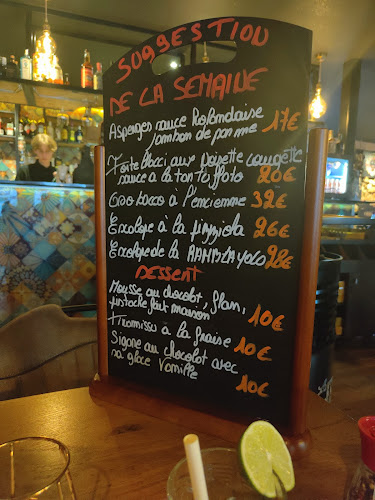 SUGGESTION
DE LA SEMAINE
Asperges sauce Hollandaise
jambon de parme 17€
aux noisette courgette
sauce à la tartuffoto 20€
à l'encienne 32€
Escalope à la pizziola 26€
Escalope de la 28€
DESSERT
Mousse au chocolat, flan,
pistache fait maison 10€
Tiramissu à la fraise 10€
Sigare au chocolat avec
sa glace Vanille 10€